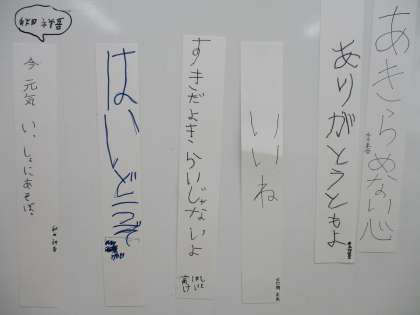 あきらめない心
ありがとうともよ
いいね
すきだよきらいじゃないよ
はいどうぞ
今 元気
い、しょにあそぼ。